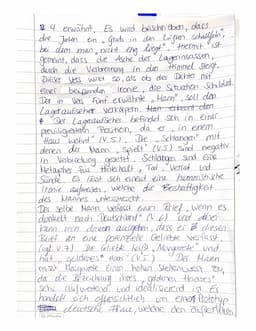 4 erwähnt. Es wird beschrieben, dass
die Juden ein „Grab in den Lüften schaufeln,
bei dem man „nicht eng liegt". Hiermit ist
gemeint, dass die Asche der Lagerinsassen,
durch die Verbrennung in den Himmel steigt.
Dieser Vers wirkt so, als ob der Dichter mit
einer beissenden Ironie, die Situation schildert.
Der in Vers fünf erwähnte „Mann", soll den
Lageraufseher verkörpern.
Der Lageraufseher befindet sich in einer
privilegierten Position, da er „in einem
Haus wohnt" (V.5). Die „Schlangen" mit
denen der Mann „spielt" (V.5) sind negativ
in Verbindung gesetzt. Schlangen sind eine
Metapher für Hinterhalt, Tod, Verrat und
Sünde. Es lässt sich erneut eine
Ironie aufweisen, welche die Boshaftigkeit
des Mannes unterstreicht.
Der selbe Mann verfasst einen Brief, wenn es
dunkelt nach Deutschland" (V.6) und
kann man davon ausgehen, dass er diesen
Brief an eine potenzielle Geliebte verfasst.
(vgl. V.7) Die Geliebte heißt „Margarete" und
hat „goldenes Haar" (V.5). Der Mann
misst Margarete einen hohen Stellenwert zu,
da die Bezeichnung ihres „goldenen Haares"
sehr aufwertend und idealisierend ist. Es
handelt sich offensichtlich um einen Prototyp
deutsche Frau, welche den